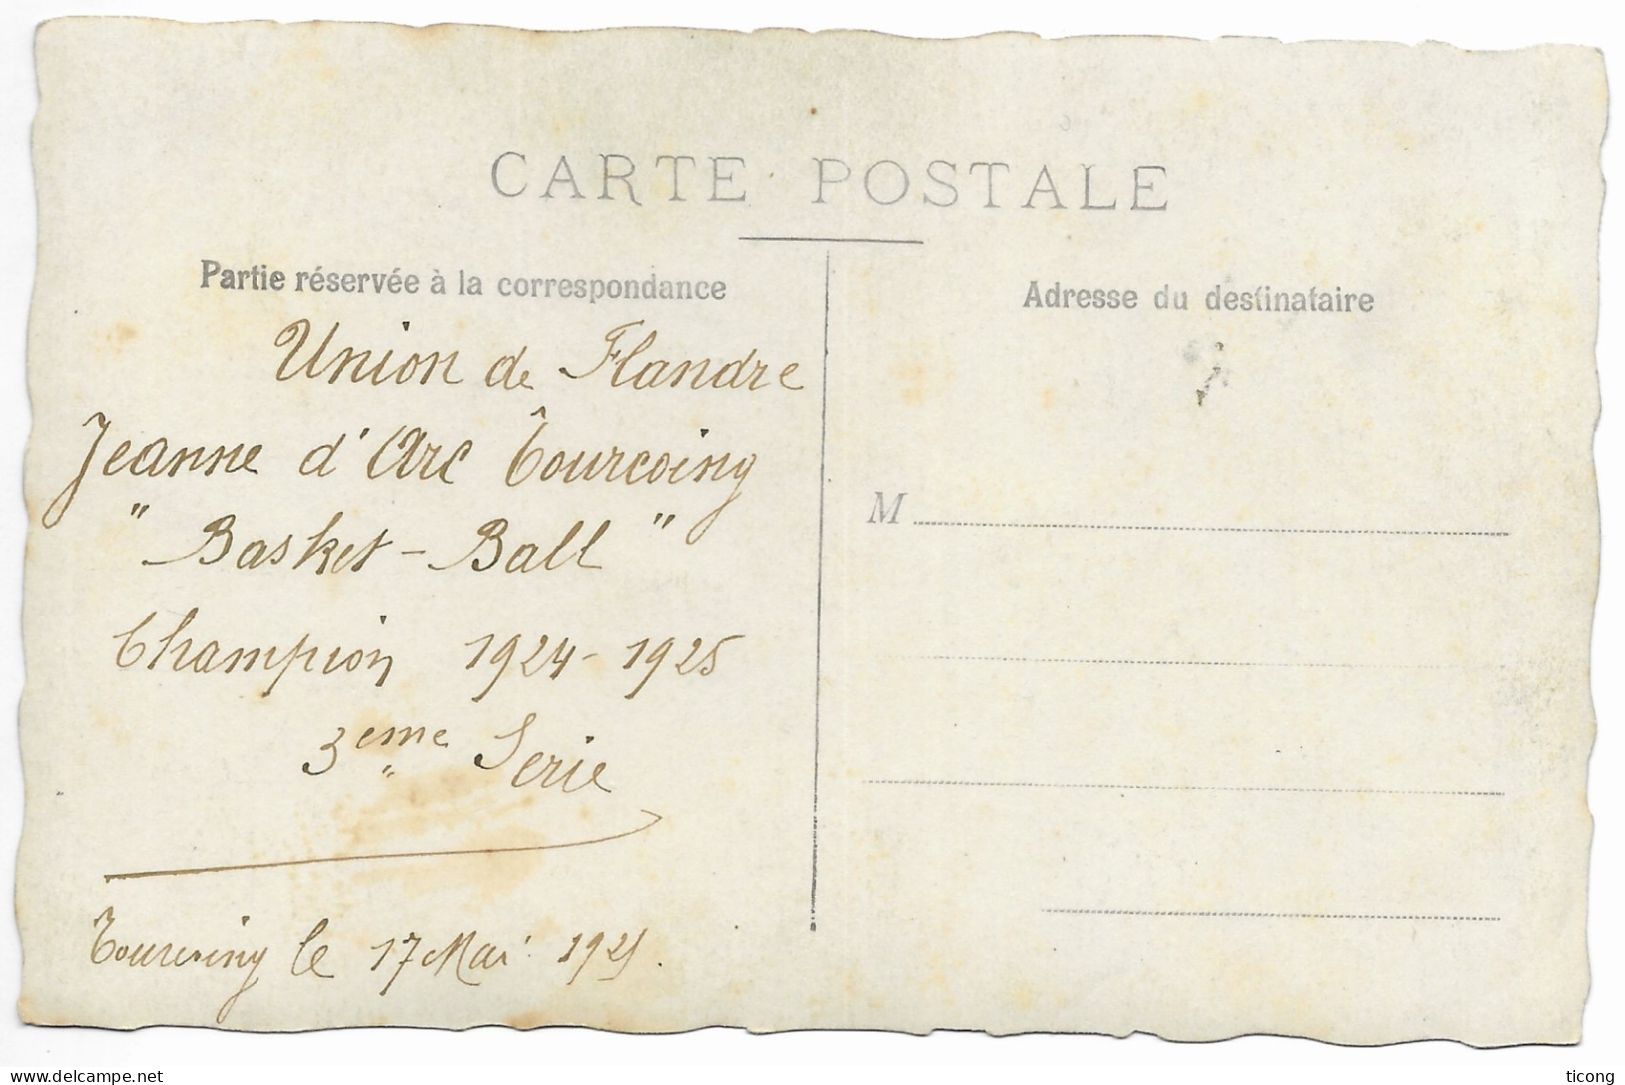 CARTE POSTALE
Partie réservée à la correspondance
Union de Flandre
Jeanne d'Arc Tourcoing
" Basket-Ball "
Champion 1924-1925
3eme Serie
Tourcoing le 17 Mai 1925.
Adresse du destinataire
M
www.delcampe.net
ticong